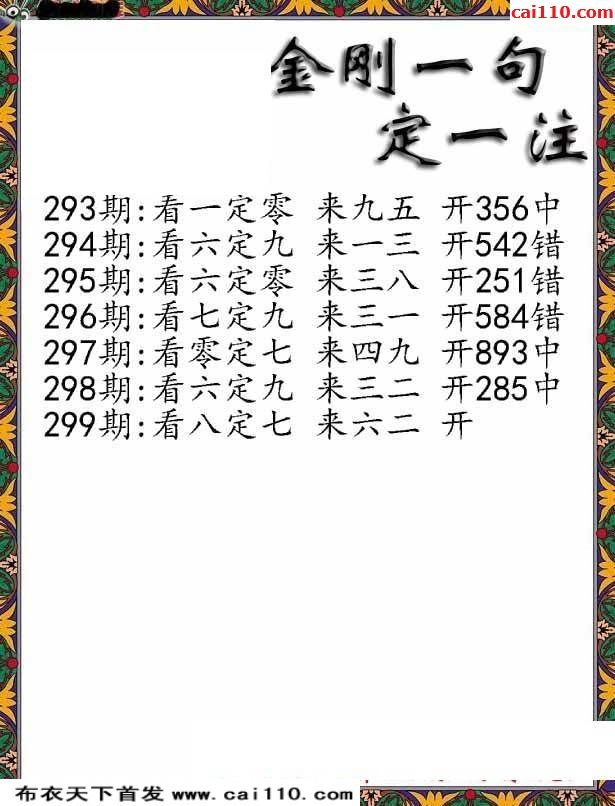 cai110.com
金刚一句
定一注
293期:看一定零 来九五 开356中
294期:看六定九 来一三 开542错
295期:看六定零 来三八 开251错
296期:看七定九 来三一 开584错
297期:看零定七 来四九 开893中
298期:看六定九 来三二 开285中
299期:看八定七 来六二 开
布衣天下首发 www.cai110.com